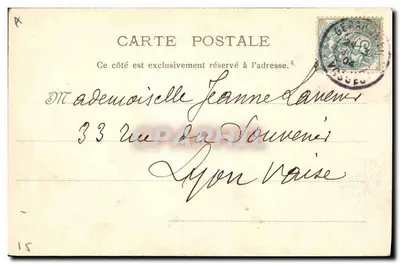 CARTE POSTALE
Ce côté est exclusivement réservé à l'adresse.
Mademoiselle Jeanne
33 rue du Souvenir
Lyon Vaise
15